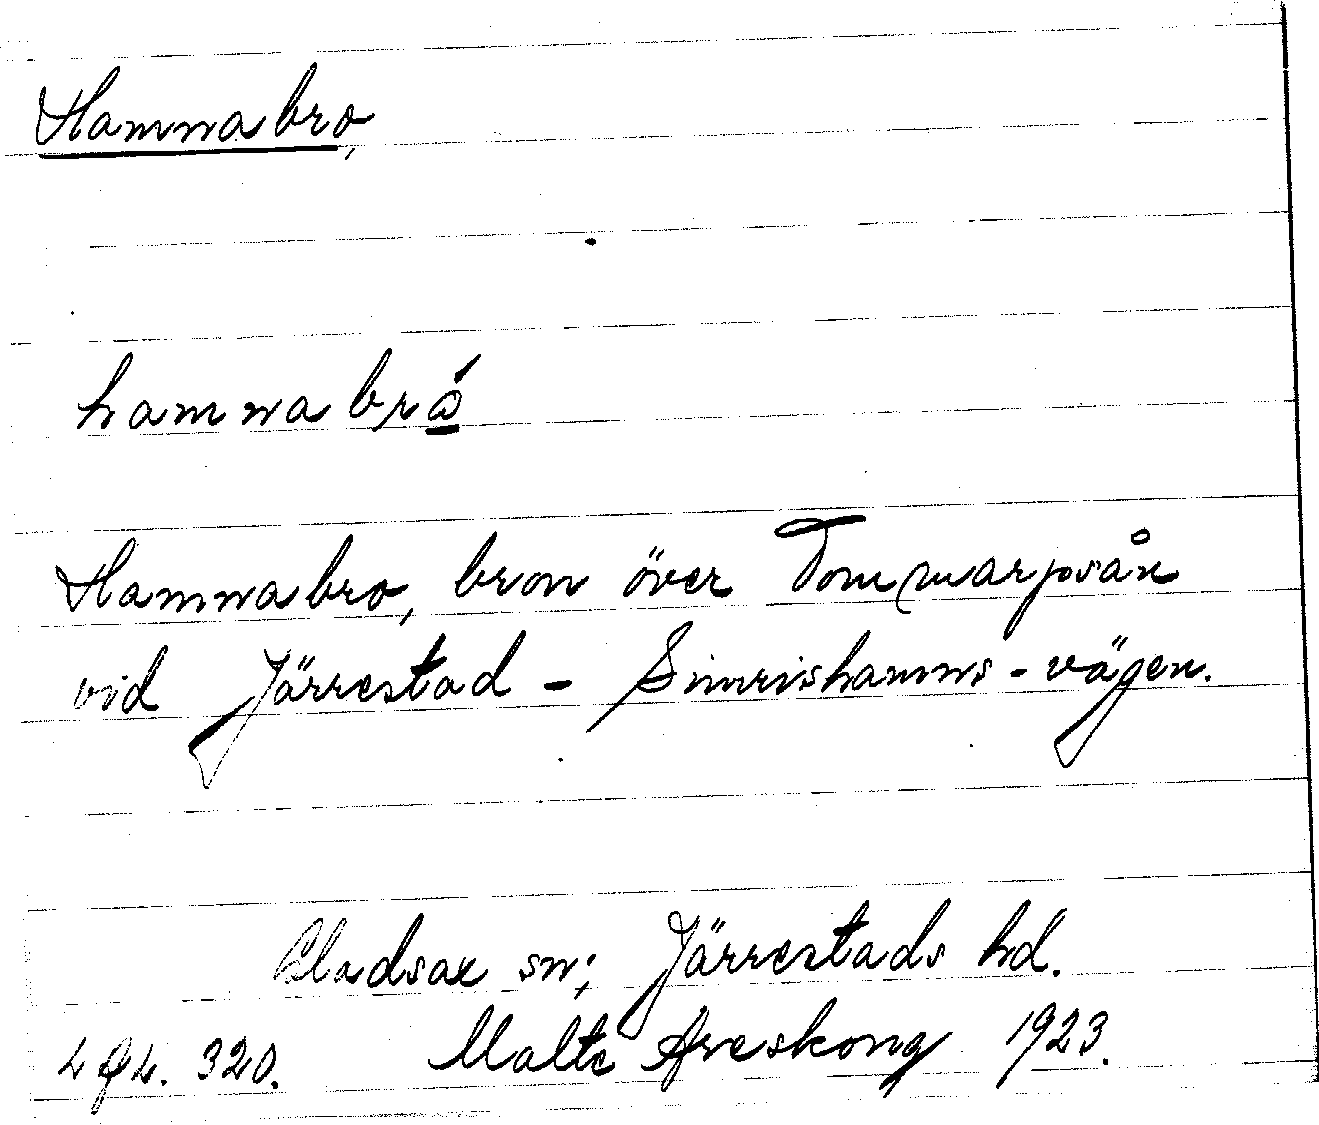 Hamnabro,
hamnabrǻ
Hamnabro, bron över Tommarpsån
vid Järrestad - Simrishamns-vägen.
Gladsax sn; Järrestads hd.
320. Malte Areskoug 1923.